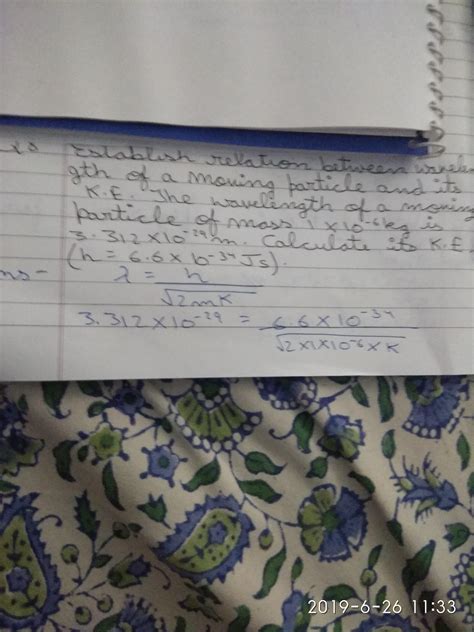 Establish relation between wavelen
gth of a moving particle and its
K.E. The wavelength of a moving
particle of mass 1 × 10⁻⁶kg is
3.312 × 10⁻²⁹m. Calculate its K.E.
(h = 6.6 × 10⁻³⁴ Js).
ns - λ = h / √2mK
3.312 × 10⁻²⁹ = 6.6 × 10⁻³⁴ / √2×1×10⁻⁶×K
2019-6-26 11:33